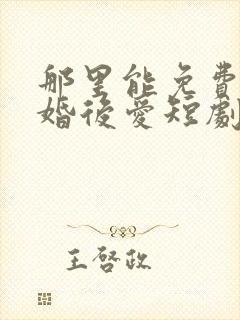 那里能免費
婚後愛短劇
王啓政